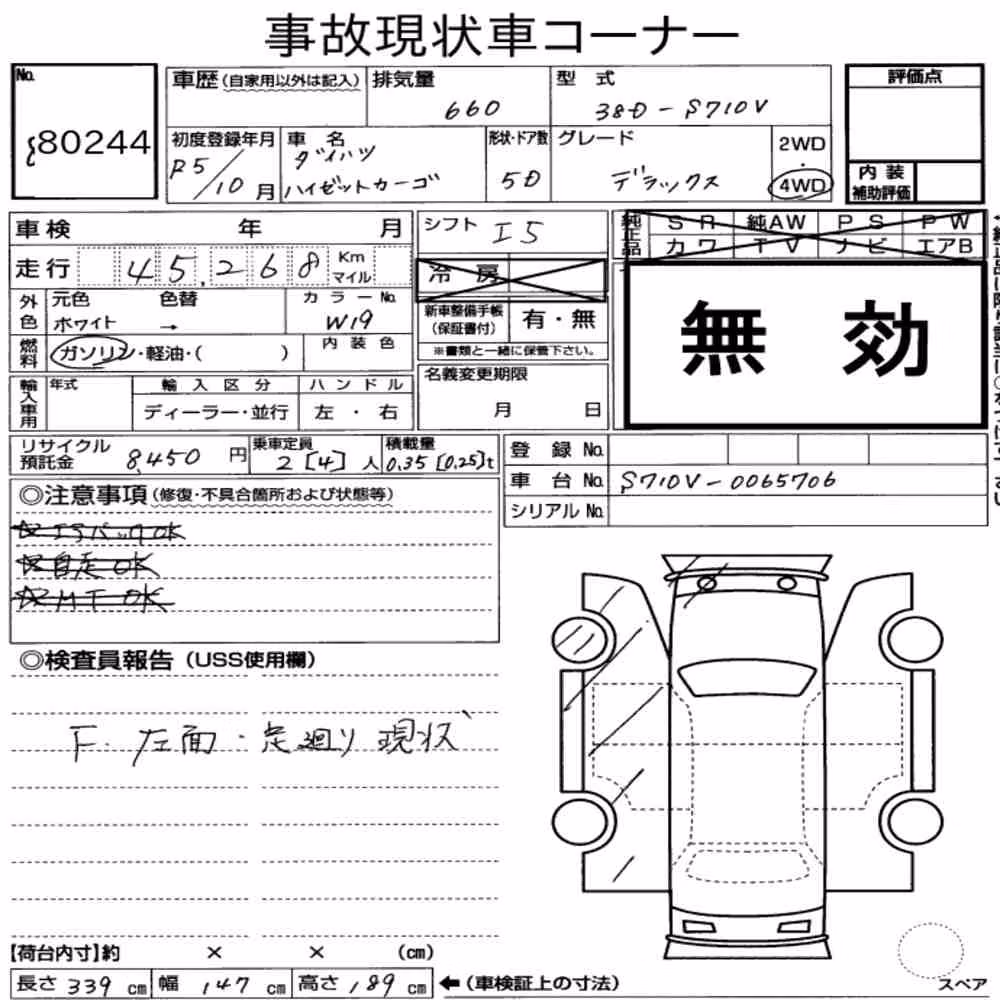 事故現状車コーナー
No. 80244
車歴(自家用以外は記入) 排気量 660 型式 3BD-S710V 評価点
初度登録年月 R5/10月 車名 ダイハツ ハイゼットカーゴ 形状・ドア数 5D グレード デラックス 2WD・4WD
内装補助評価
車検 年 月 シフト I5 純正品 SR 純AW PS PW
カワ TV ナビ エアB
走行 45,268 Km マイル 冷房
外色 元色 ホワイト 色替 → カラーNo. W19
新車整備手帳(保証書付) 有・無
※書類と一緒に保管下さい。
無効
燃料 ガソリン・軽油・( ) 内装色
輸入車用 年式 輸入区分 ハンドル
ディーラー・並行 左・右
名義変更期限 月 日
リサイクル預託金 8,450円 乗車定員 2[4]人 積載量 0.35[0.25]t
登録No.
車台No. S710V-0065706
シリアルNo.
◎注意事項(修復・不具合箇所および状態等)
☆エアバックOK
☆自走OK
☆MTOK
◎検査員報告(USS使用欄)
F・左面・足廻り現状
【荷台内寸】約 × × (cm)
長さ 339 cm 幅 147 cm 高さ 189 cm ←(車検証上の寸法)
スペア